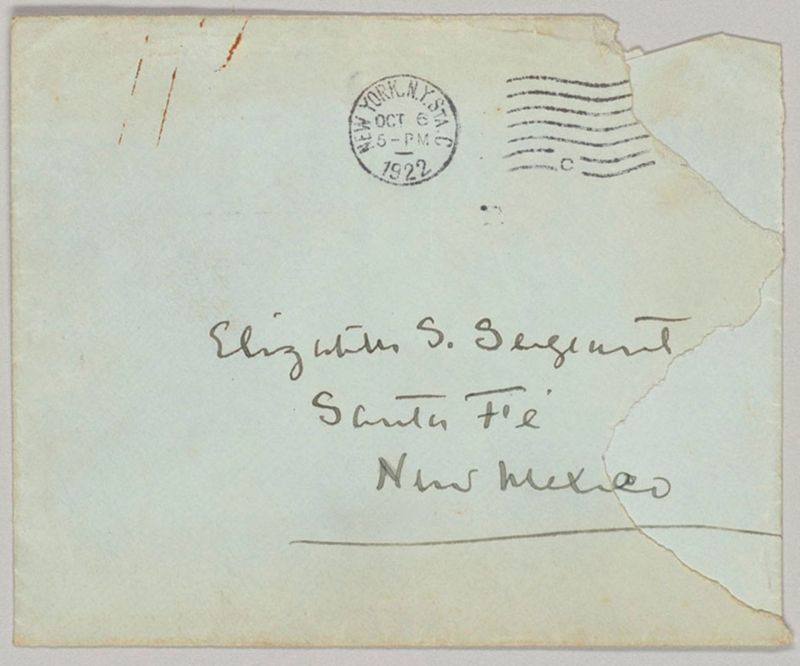 NEW YORK, N.Y. STA. C
OCT 6
5-PM
1922
C
Elizabeth S. Sergeant
Santa Fé
New Mexico